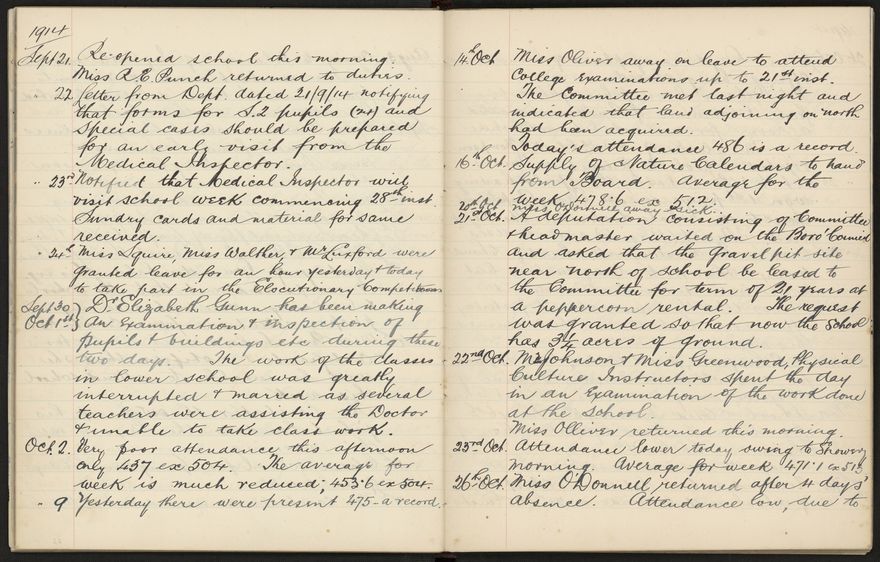 1914
Sept 21. Re-opened school this morning.
Miss R. E. Punch returned to duties.
" 22. Letter from Dept. dated 21/9/14 notifying
that forms for S.2 pupils (24) and
special cases should be prepared
for an early visit from the
Medical Inspector.
" 23rd Notified that Medical Inspector will
visit school week commencing 28th inst.
Sundry cards and material for same
received.
" 24th Miss Squire, Miss Walther & Mr Luxford were
granted leave for an hour yesterday & today
to take part in the Elocutionary Competitions
Sept 30 } Dr Elizabeth Gunn has been making
Oct 1st } An examination & inspection of
pupils & buildings etc during these
two days. The work of the classes
in lower school was greatly
interrupted & marred as several
teachers were assisting the Doctor
& unable to take class work.
Oct. 2. Very poor attendance this afternoon
only 437 ex 504. The average for
week is much reduced; 453.6 ex 504.
" 9 Yesterday there were present 475 - a record.
14th Oct. Miss Oliver away on leave to attend
College Examinations up to 21st inst.
The Committee met last night and
indicated that land adjoining on north
had been acquired.
Today's attendance 486 is a record.
16th Oct. Supply of Nature Calendars to hand
from Board. Average for the
week 478.6 ex 512.
20th Oct. Miss O'Donnell away sick.
21st Oct. A deputation consisting of Committee
& headmaster waited on the Boro' Council
and asked that the gravel pit site
near north of school be leased to
the Committee for term of 21 years at
a peppercorn rental. The request
was granted so that now the school
has 3¼ acres of ground.
22nd Oct. Mr Johnson & Miss Greenwood, Physical
Culture Instructors spent the day
in an Examination of the work done
at the school.
Miss Olliver returned this morning.
23rd Oct. Attendance lower today owing to showery
morning. Average for week 471.1 ex 513
26th Oct. Miss O'Donnell returned after 4 days'
absence. Attendance low, due to